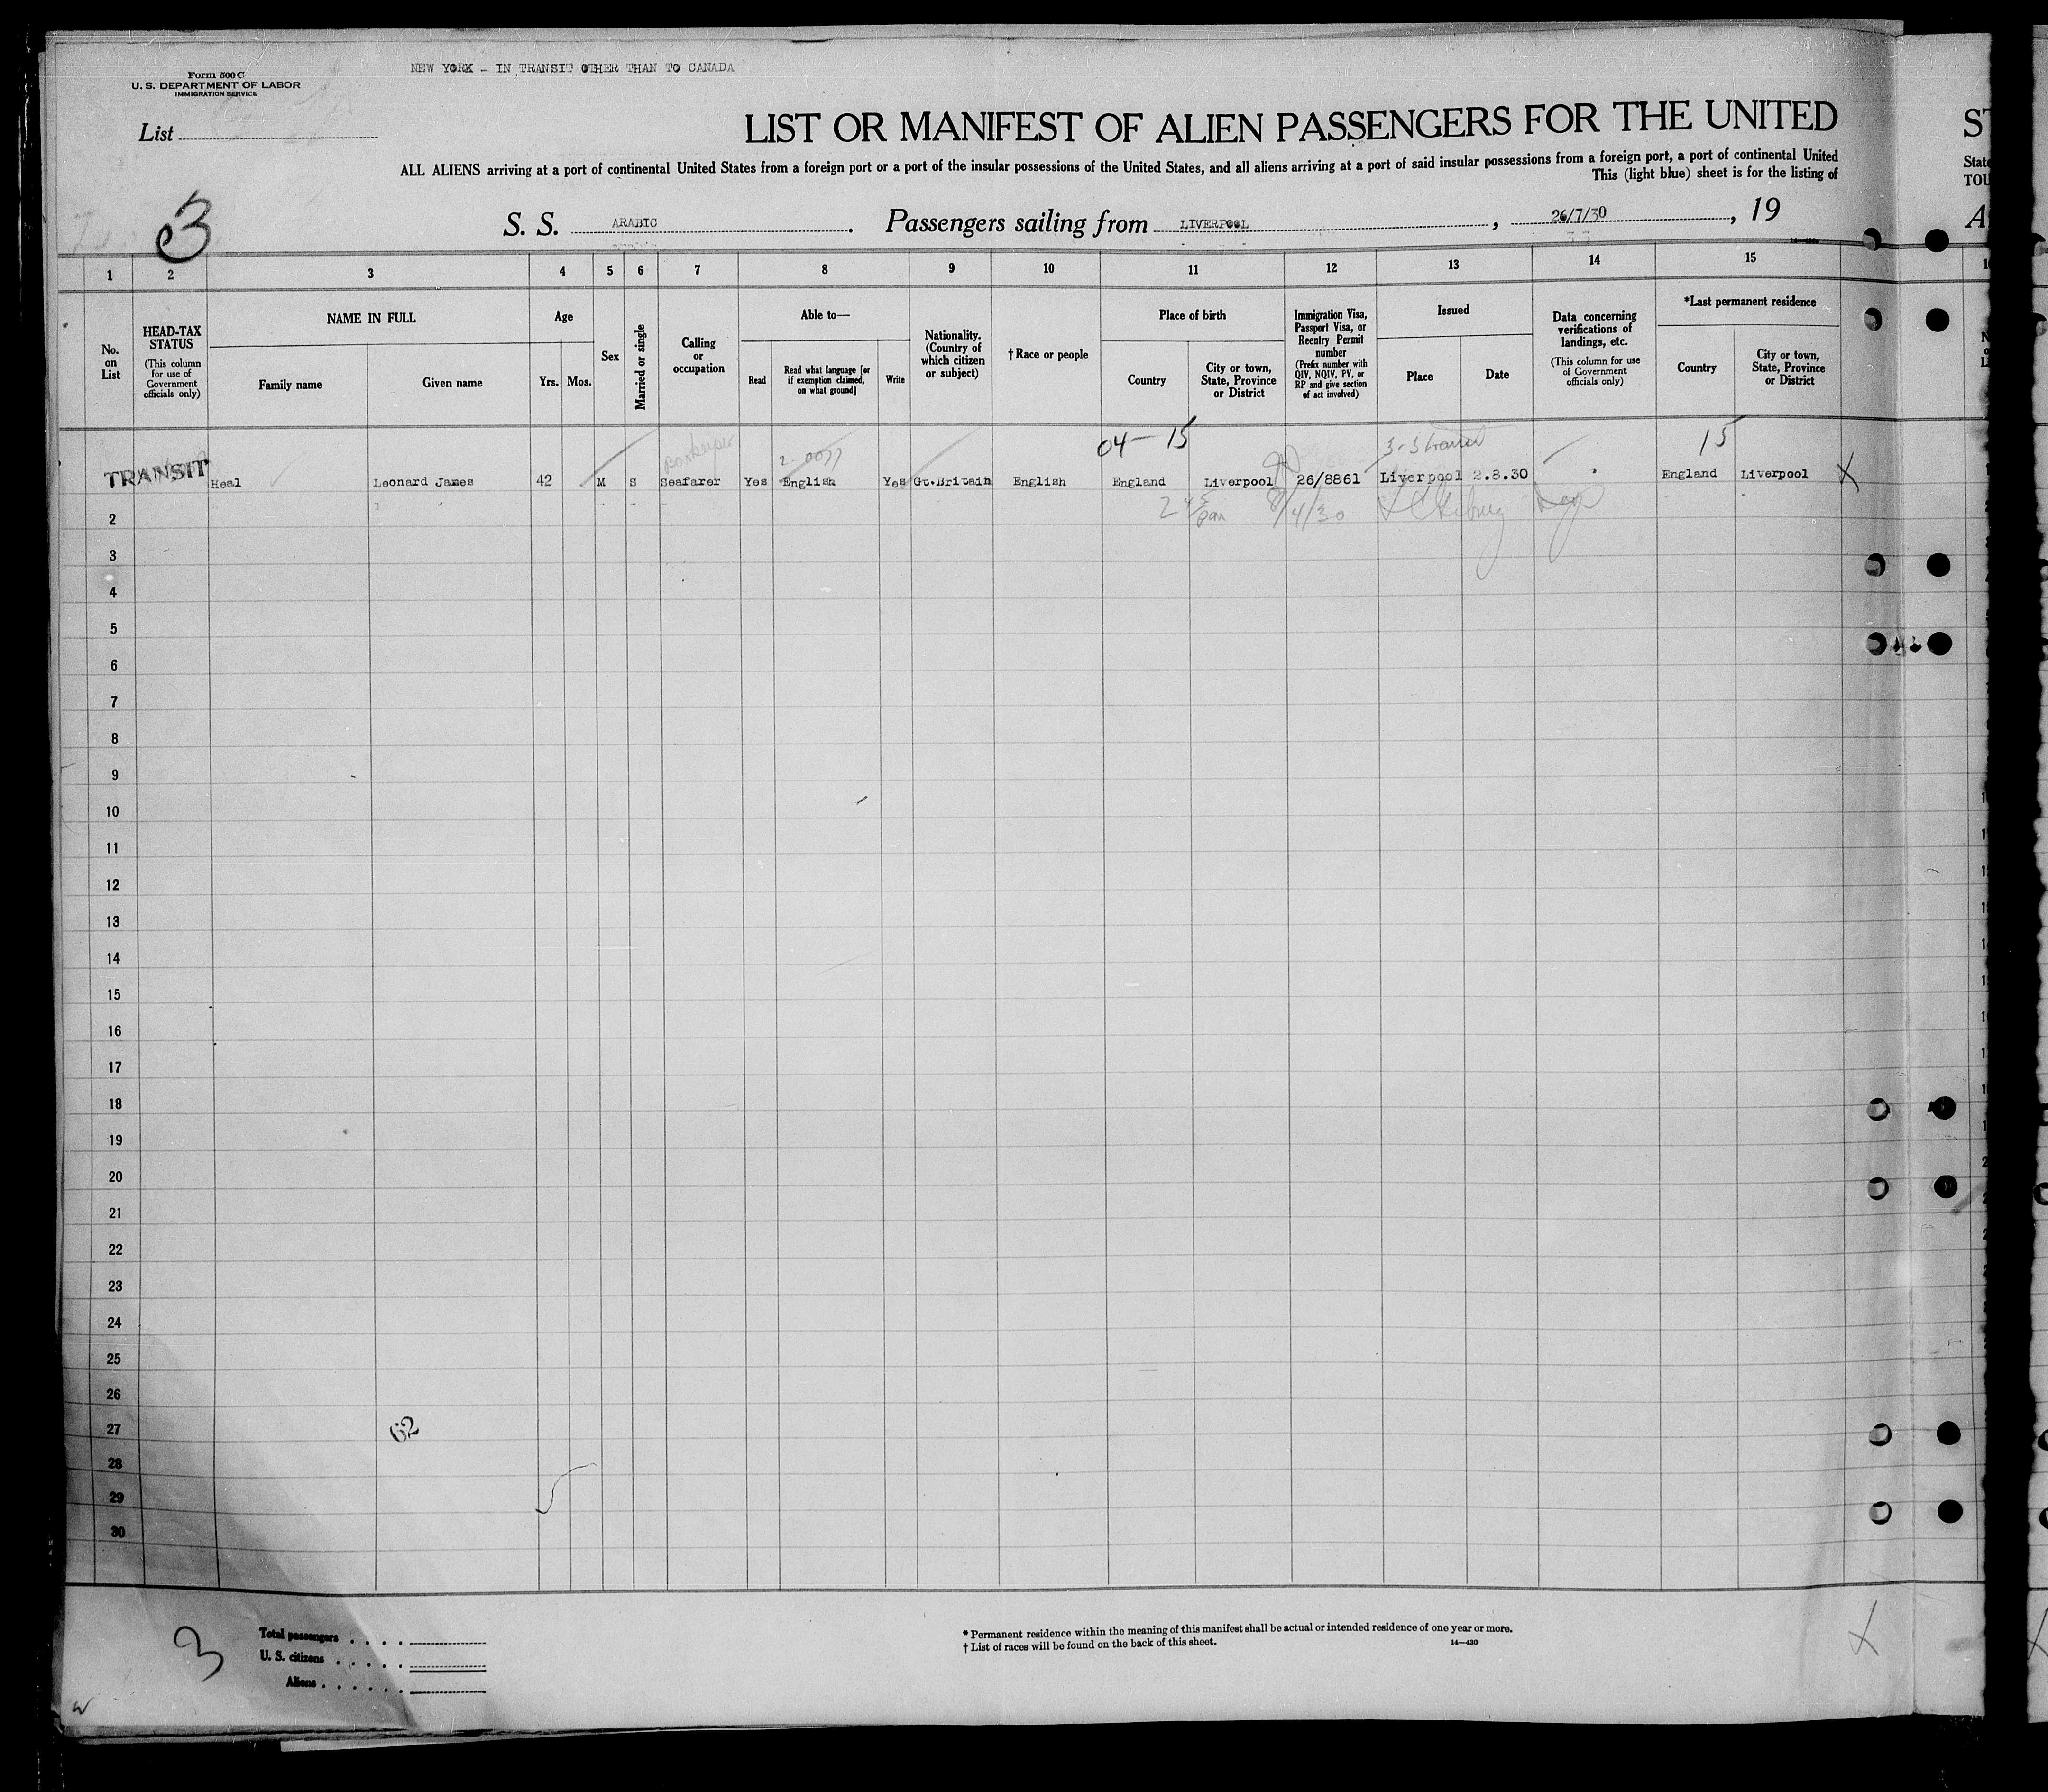 Form 500 C
U. S. DEPARTMENT OF LABOR
IMMIGRATION SERVICE
NEW YORK - IN TRANSIT OTHER THAN TO CANADA
List
LIST OR MANIFEST OF ALIEN PASSENGERS FOR THE UNITED
ST
ALL ALIENS arriving at a port of continental United States from a foreign port or a port of the insular possessions of the United States, and all aliens arriving at a port of said insular possessions from a foreign port, a port of continental United
State
This (light blue) sheet is for the listing of
TOU
3
S. S. ARABIC. Passengers sailing from LIVERPOOL, 26/7/30, 19
A
1 2 3 4 5 6 7 8 9 10 11 12 13 14 15
No. on List
HEAD-TAX STATUS
(This column for use of Government officials only)
NAME IN FULL
Family name
Given name
Age
Yrs.
Mos.
Sex
Married or single
Calling or occupation
Able to—
Read
Read what language [or if exemption claimed, on what ground]
Write
Nationality. (Country of which citizen or subject)
† Race or people
Place of birth
Country
City or town, State, Province or District
Immigration Visa, Passport Visa, or Reentry Permit number
(Prefix number with QIV, NQIV, PV, or RP and give section of act involved)
Issued
Place
Date
Data concerning verifications of landings, etc.
(This column for use of Government officials only)
*Last permanent residence
Country
City or town, State, Province or District
04 - 15
15
TRANSIT Heal Leonard James 42 M S Seafarer Yes English Yes Gt.Britain English England Liverpool 26/8861 Liverpool 2.8.30 England Liverpool X
2
3
4
5
6
7
8
9
10
11
12
13
14
15
16
17
18
19
20
21
22
23
24
25
26
27
62
28
29
30
3
Total passengers
U. S. citizens
Aliens
* Permanent residence within the meaning of this manifest shall be actual or intended residence of one year or more.
† List of races will be found on the back of this sheet.
14—430
X